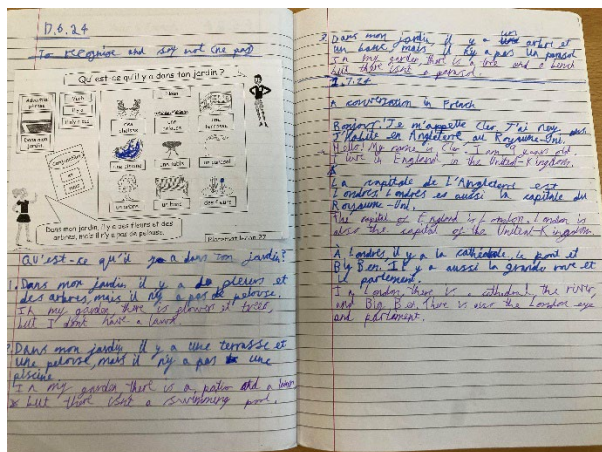 17.6.24
To recognise and say not (ne pas)
Qu'est-ce qu'il y a dans ton jardin?
Adverbial phrase
Dans mon jardin
Verb
il y a
il n'y a pas
Noun
des chaises
une pelouse
une terrasse
une piscine
une table
un parasol
un arbre
un banc
des fleurs
Conjunction
et
mais
Dans mon jardin, il y a des fleurs et des
arbres, mais il n'y a pas de pelouse.
Qu'est-ce qu'il y a dans ton jardin?
1. Dans mon jardin il y a de pleurs et
des arbres, mais il n'y a pas de pelouse.
In my garden, there is flowers & trees,
but I don't have a lawn.
2. Dans mon jardin il y a une terrasse et
une pelouse, mais il n'y a pas une
piscine
In my garden there is a patio and a
but there isnt a swimming pool.
3. Dans mon jardin il y a un arbre et
un banc, mais il n'y a pas un parasol
In my garden, there is a tree and a bench
but there isnt a parasol.
1.7.24
A conversation in French
Bonjour! Je m'appelle Cleo. J'ai neuf
J'habite en Angleterre au Royaume-Uni.
Hello! My name is Cleo. I am 9 years old
I live in England in the United-Kingdom.
La capitale de L'Angleterre est
Londres. Londres es aussi la capitale du
Royaume-Uni.
The capital of England is London. London is
also the capital of the United-Kingdom.
À Londres il y a la cathédrale, le pont et
Big Ben. Il y a aussi la grande roue et
le parlement
In London, there is a cathedral, the river,
and Big Ben. There is also the London eye
and parlament.